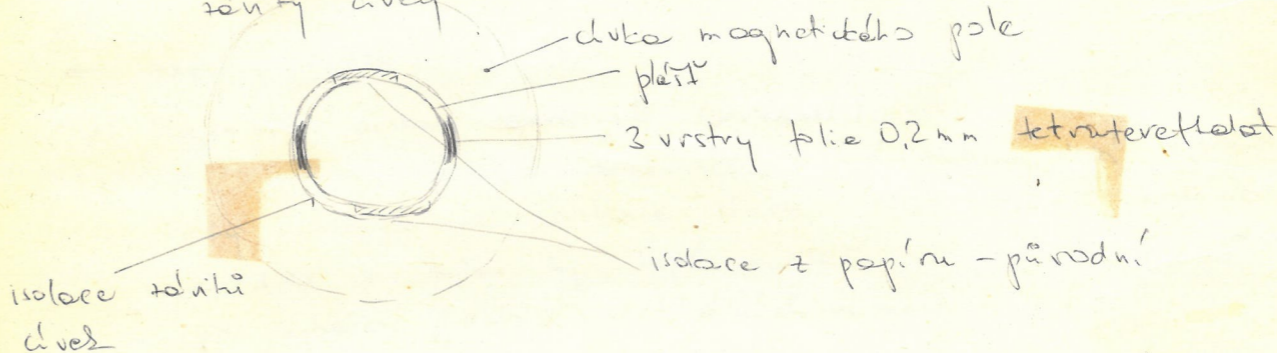 závity cívky
cívka magnetického pole
plášť
3 vrstvy folie 0,2 mm tetratereftalat
isolace z papíru – původní
isolace závitů
cívek